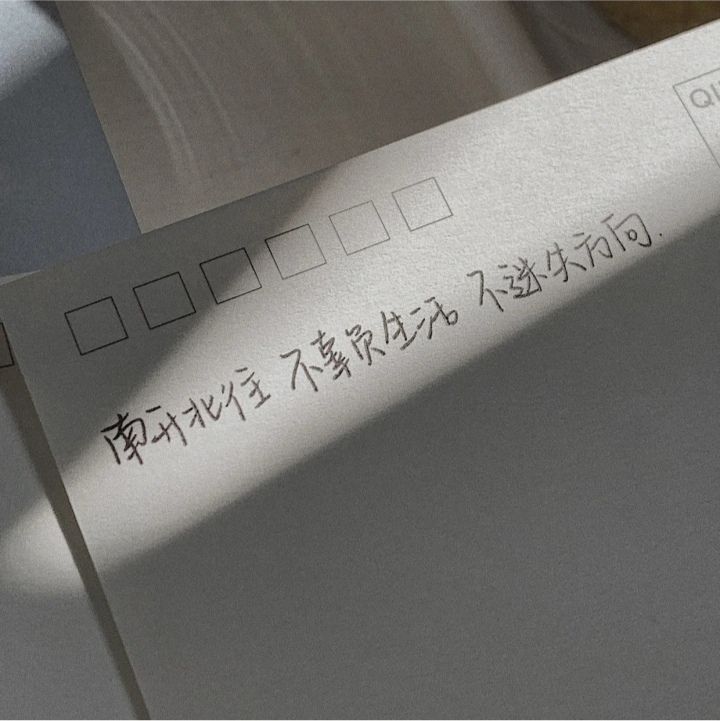 QI
南开北往 不辜负生活 不迷失方向.